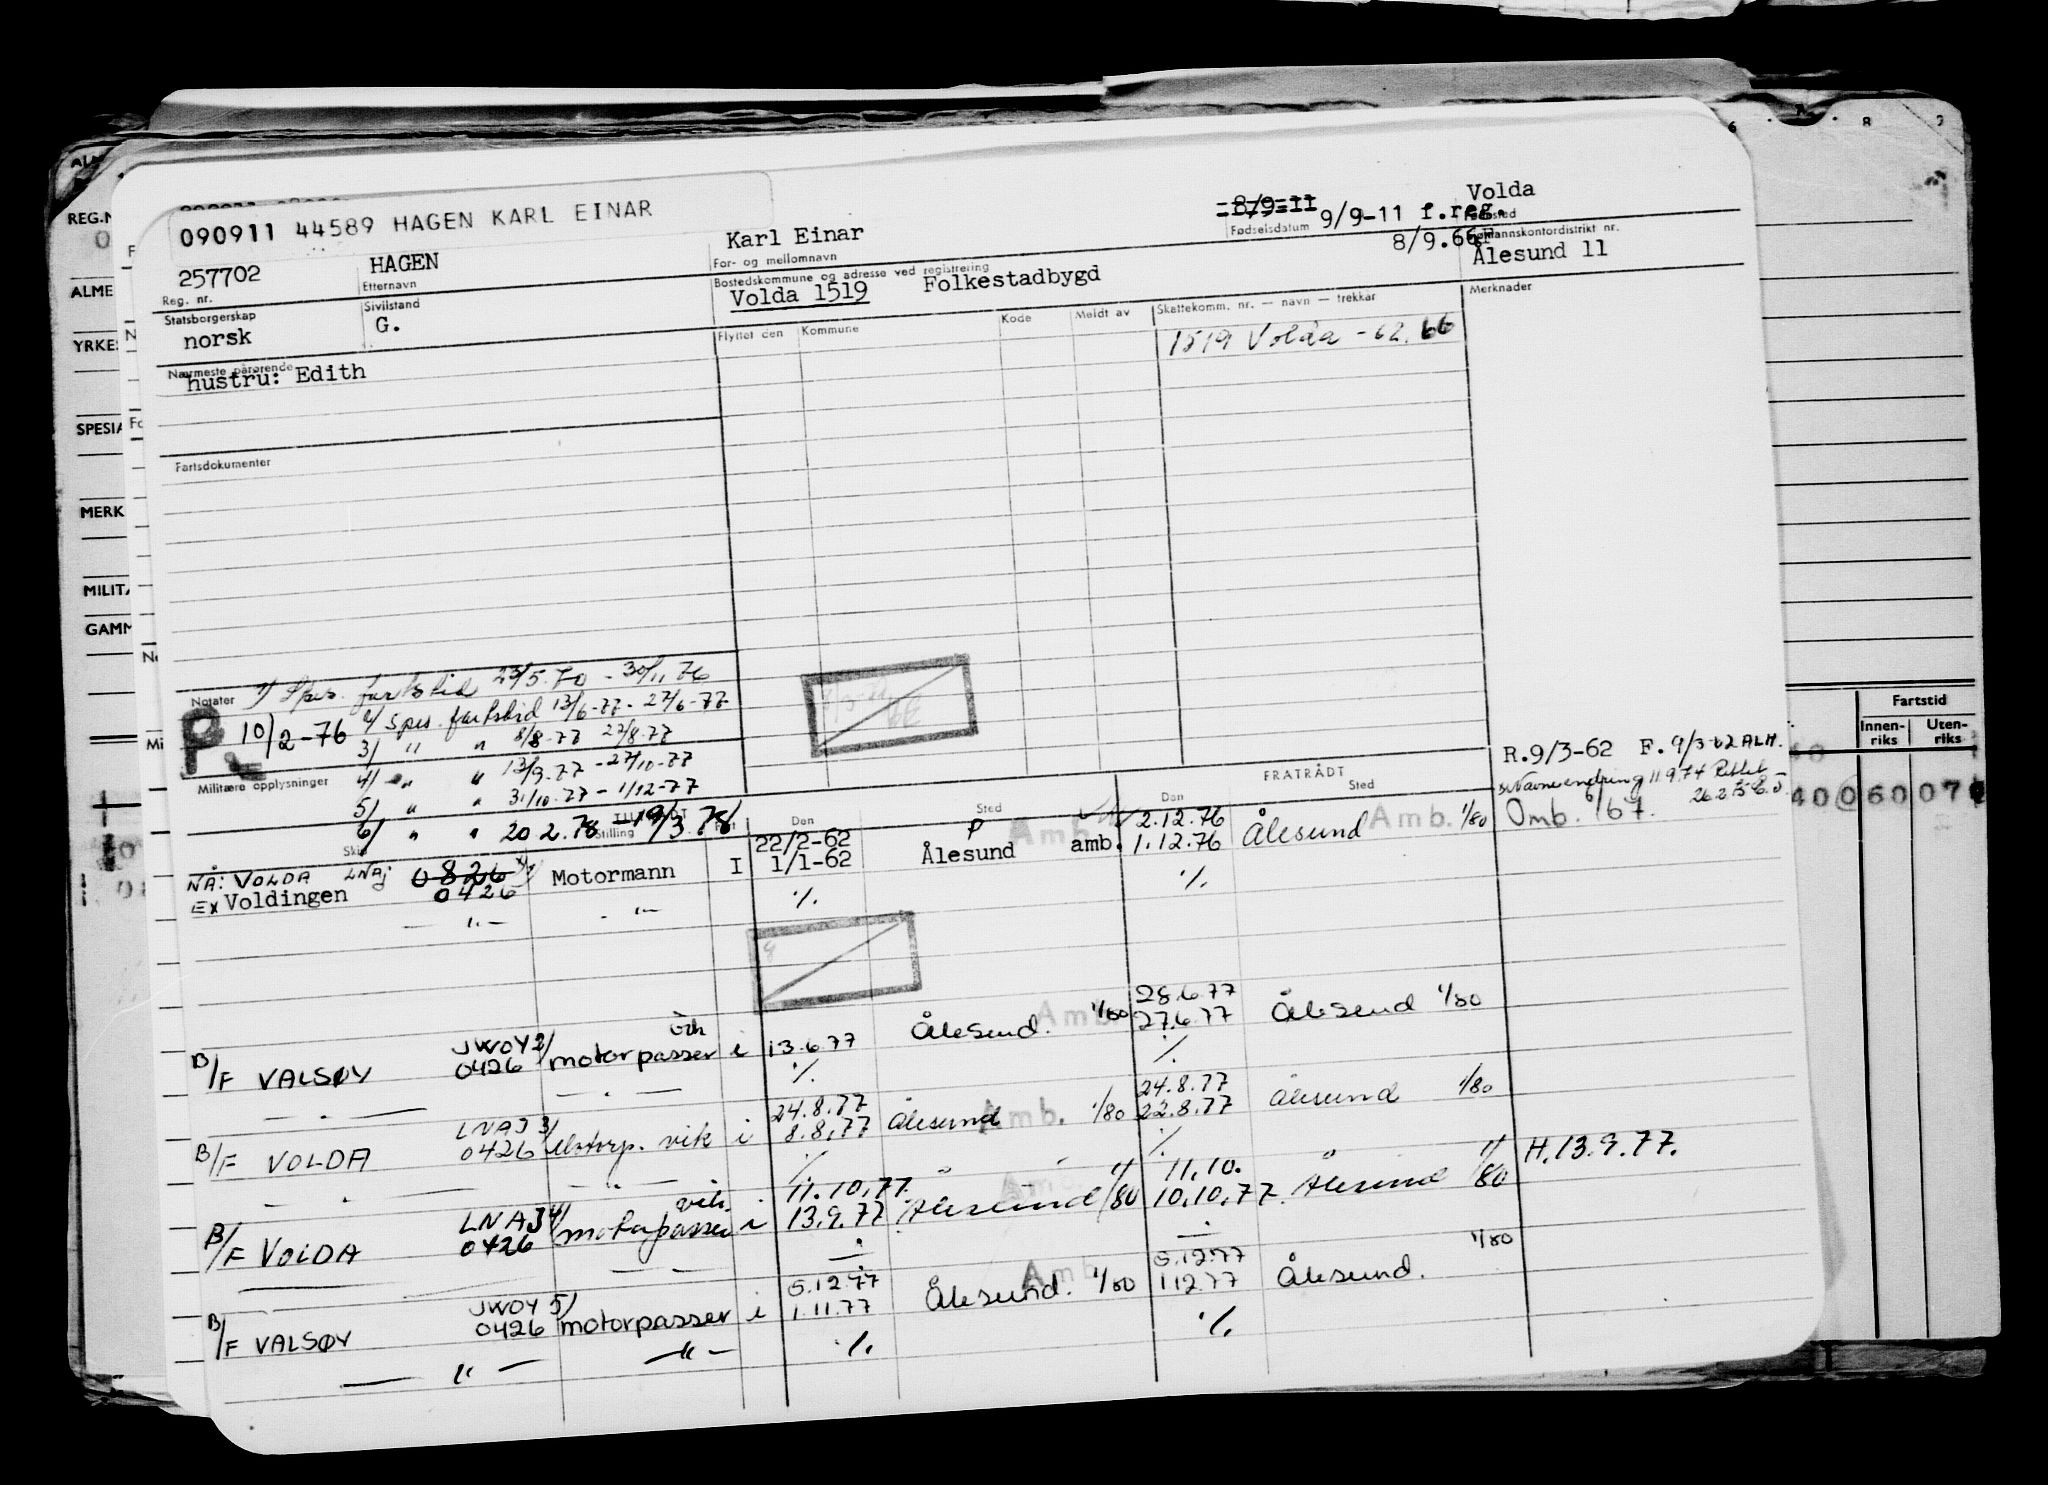 090911 44589 HAGEN KARL EINAR
8/9-11 9/9-11 f.reg. 8/9.66
Volda
257702 HAGEN Karl Einar Fødselsdatum Fødested
Reg. nr. Etternavn For- og mellomnavn mannskontordistrikt nr.
Ålesund 11
Statsborgerskap Sivilstand Bostedskommune og adresse ved registrering
norsk G. Volda 1519 Folkestadbygd
Flyttet den Kommune Kode Meldt av Skattekomm. nr. — navn — trekkar Merknader
1519 Volda - 62. 66
Nærmeste pårørende
hustru: Edith
Fartsdokumenter
Notater 1/ Spes. fartstid 23/5.70 - 30/11 76
P 10/2-76 2/ spes. fartstid 13/6-77 - 27/6-77
3/ " " 8/8-77 22/8-77
Militære opplysninger 4/ " " 13/9-77 - 27/10-77
5/ " " 31/10-77 - 1/12-77
6/ " " 20.2.78 - 19/3.78
R.9/3-62 F. 9/3-62 ALM.
Navneendring 11.9.74
Omb. '67.
FRATRÅDT
Stilling Den Sted Den Sted
NÅ: VOLDA LNAJ 0826 22/2-62 P Amb. 2.12.76 Amb. 1/80
Ex Voldingen 0426 Motormann I 1/1-62 Ålesund amb. 1.12.76 Ålesund
— " — - " - ./. ./.
B/F VALSØY JWOY 2/ 0426 motorpasser vik i 13.6.77 Ålesund. Amb. 1/80 28.6.77 27.6.77 Ålesund 1/80
— " — — " — ./. ./.
B/F VOLDA LNAJ 3/ 0426 Motorp. vik i 24.8.77 8.8.77 Ålesund Amb. 1/80 24.8.77 22.8.77 Ålesund 1/80
— " — — " — ./. ./.
B/F VOLDA LNAJ 4/ 0426 motorpasser vik. i 11.10.77. 13.9.77 Ålesund 1/80 11.10. 10.10.77. Ålesund 1/80 H.13.9.77.
B/F VALSØY JWOY 5/ 0426 motorpasser i 5.12.77 1.11.77 Ålesund. Amb 1/80 5.12.77 1.12.77 Ålesund. 1/80
— " — — " — ./. ./.
REG.N
ALME
YRKE
SPESIA
MERK
MILITÆ
GAMM
Fartstid
Innenriks Utenriks
400 60 07